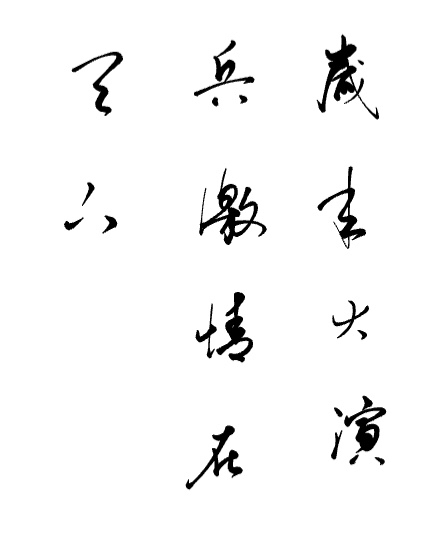 歲末大演
兵激情在
天八